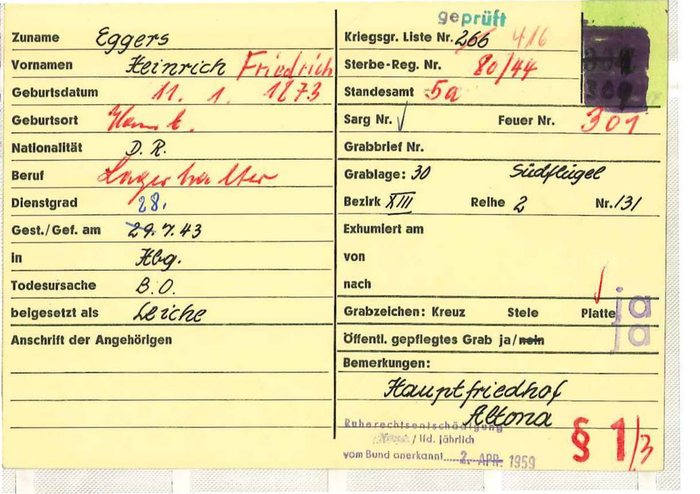 geprüft
Zuname Eggers
Vornamen Heinrich Friedrich
Geburtsdatum 11. 1. 1873
Geburtsort Hamb.
Nationalität D. R.
Beruf Lagerhalter
Dienstgrad
Gest./Gef. am 28. 29.7.43
in Hbg.
Todesursache B.O.
beigesetzt als Leiche
Anschrift der Angehörigen
Kriegsgr. Liste Nr. 266 416
Sterbe-Reg. Nr. 80/44
Standesamt 5a
Sarg Nr. √ Feuer Nr. 301
Grabbrief Nr.
Grablage: 30 Südflügel
Bezirk XIII Reihe 2 Nr. 131
Exhumiert am
von
nach
Grabzeichen: Kreuz Stele Platte ja
Öffentl. gepflegtes Grab ja/nein ja
Bemerkungen:
Hauptfriedhof
Altona
Ruherechtsentschädigung
/ lfd. jährlich
vom Bund anerkannt 2. APR. 1959
§ 1/3